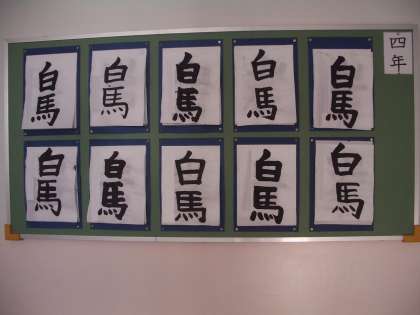 四年
白馬
白馬
白馬
白馬
白馬
白馬
白馬
白馬
白馬
白馬